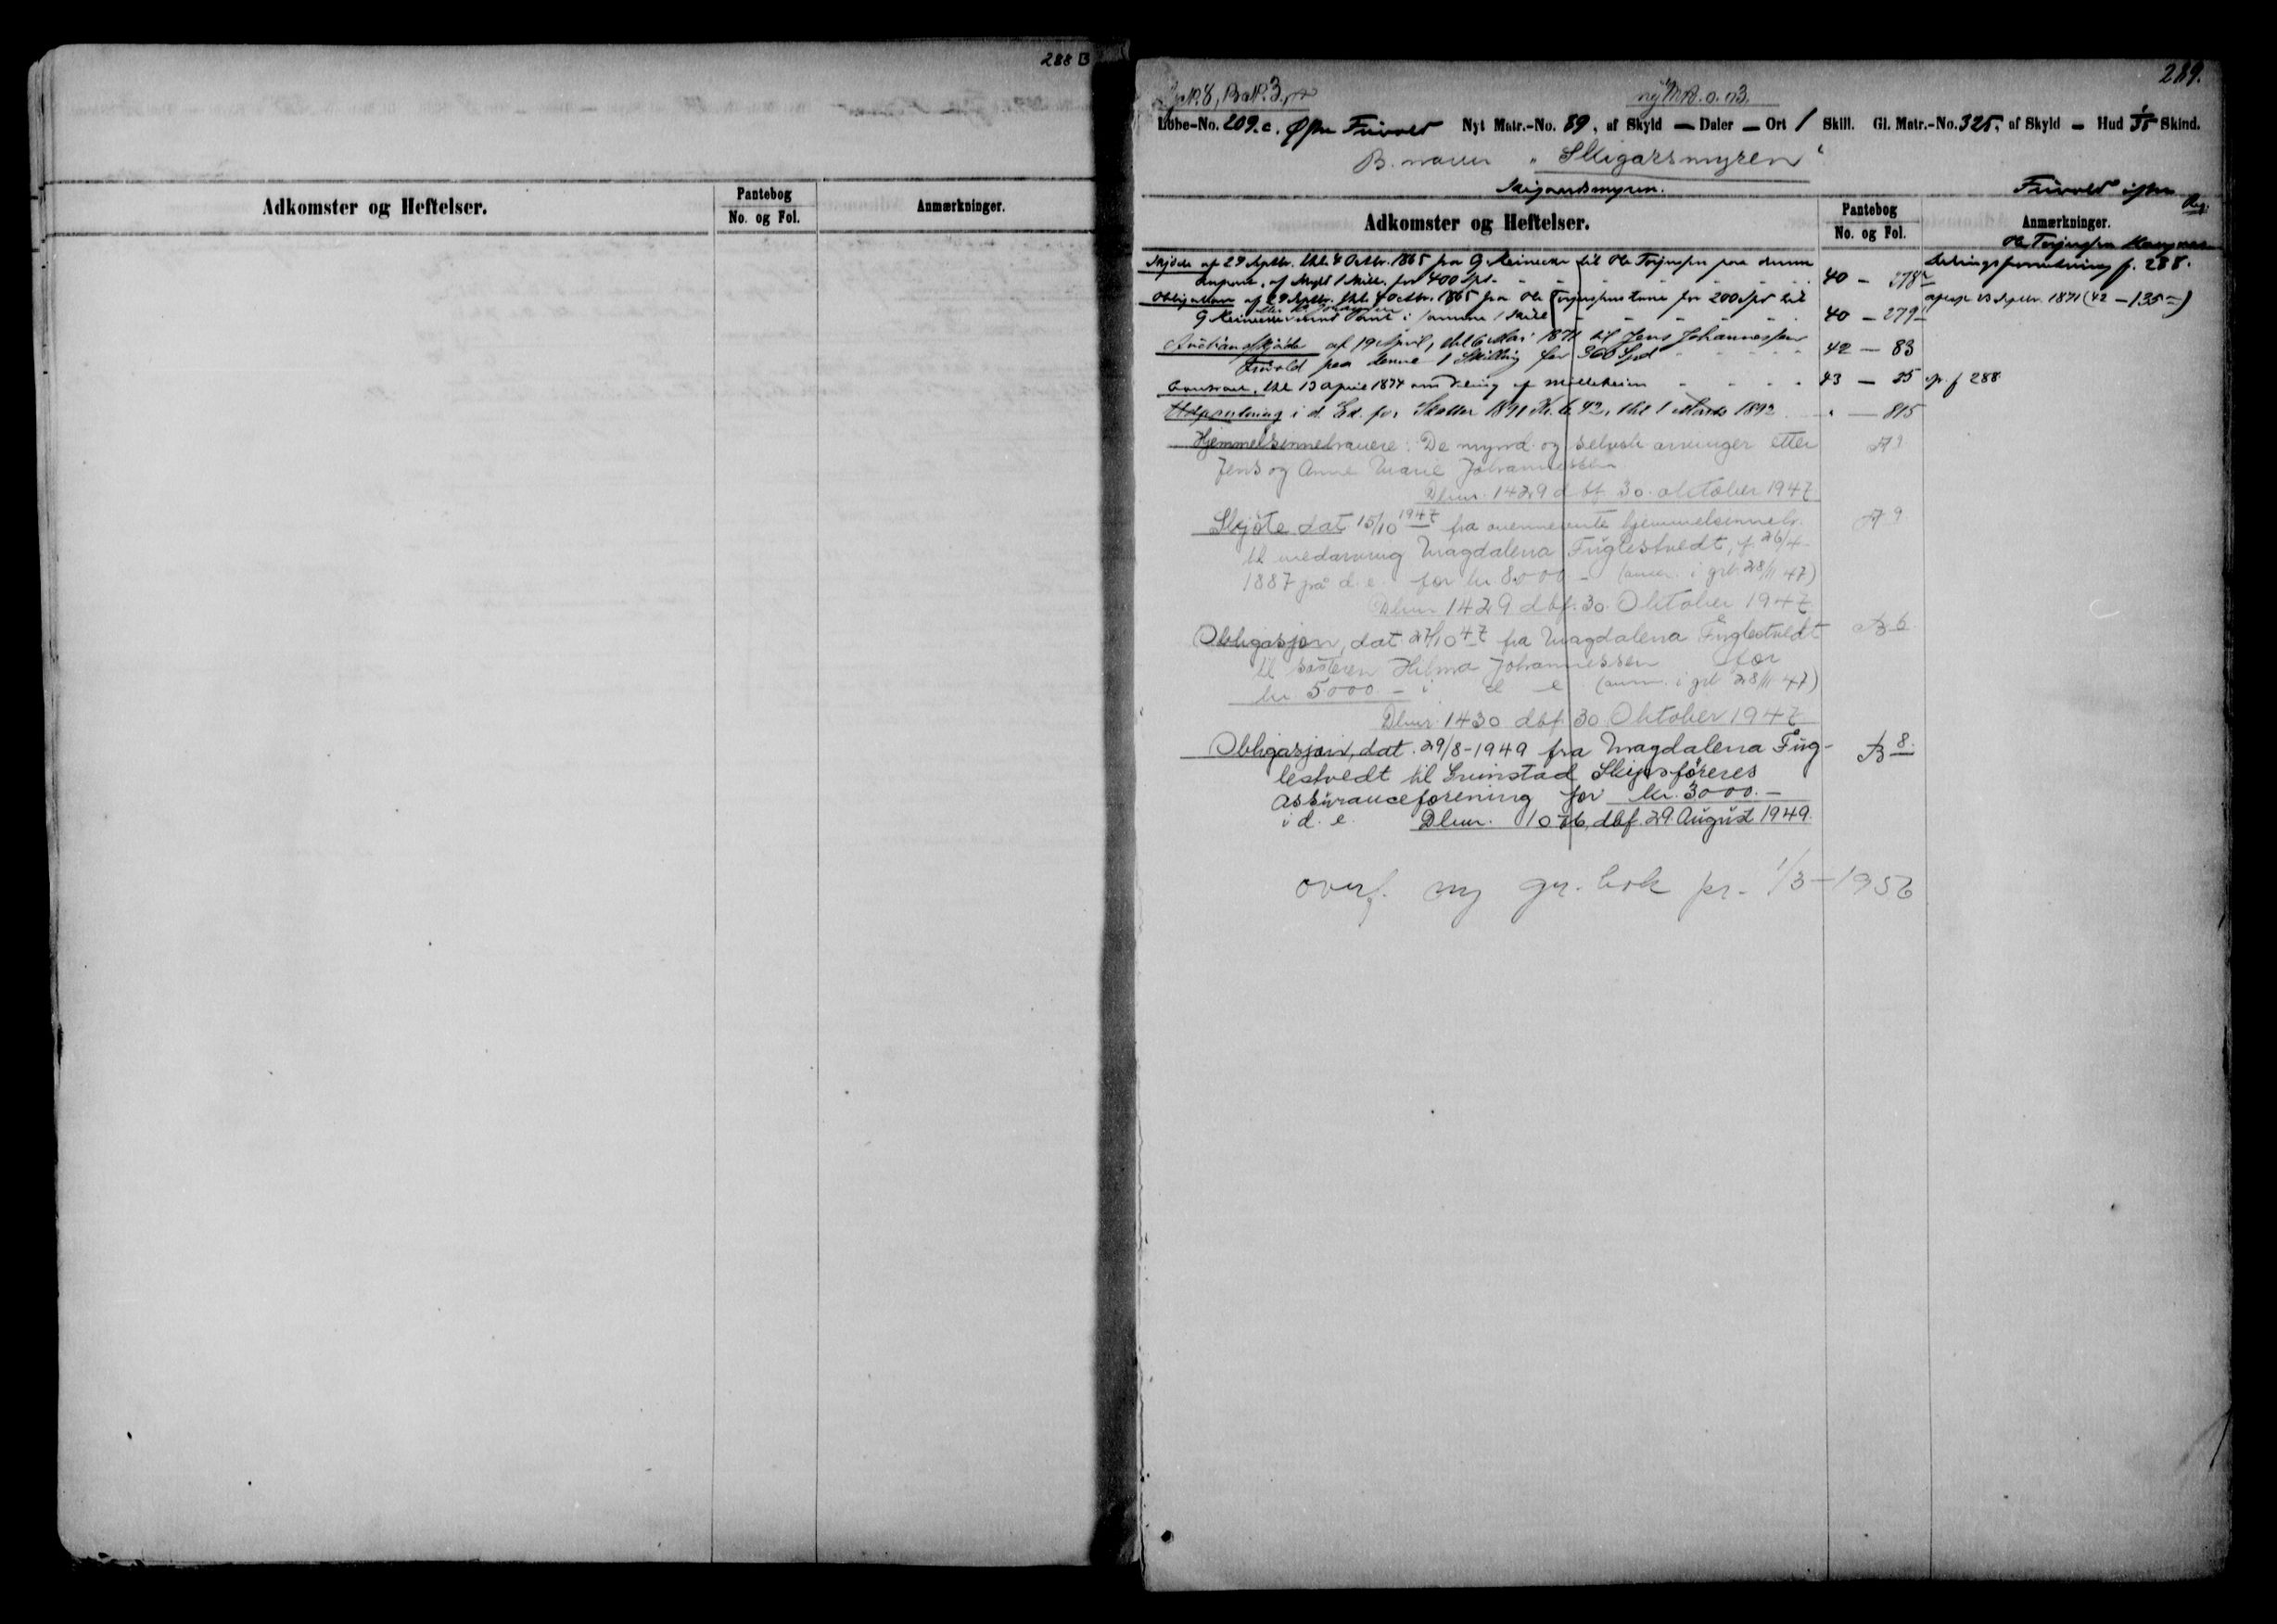 288 B
Adkomster og Heftelser.
Pantebog
No. og Fol.
Anmærkninger.
289.
G.N. 8, B.N. 3.
ny M 0.03.
Løbe-No. 209.c. Øfre Frivold Nyt Matr.-No. 89, af Skyld — Daler — Ort 1 Skill. Gl. Matr.-No. 325, af Skyld — Hud Skind.
B. navn "Skigarsmyren"
Skigaardsmyren.
Frivold
Adkomster og Heftelser.
Pantebog
No. og Fol.
Anmærkninger.
Skjøde af 29 Septbr. thl. 4 Octbr. 1865 fra G Reinecke til Ole Terjesen paa denne
af Skyld 1 Skill. for 400 Spd. 40 — 278
f. 288.
Obligation af 29 Septbr. thl. 4 Octbr. 1865 fra Ole for 200 Spd til
G Reinecke med pant i samme 1 Skill 40 — 279
Septbr. 1871 (42 — 135)
Auctionsskjøde af 19 April, thl 6 Mai 1871 til Jens Johannessen
Frivold paa denne 1 Skilling for 360 Spd 42 — 83
Contract, thl 13 April 1874 om Deling af 43 — 25 f 288
Udpantning i d. Ed. for Skatter 1891 Kr. 6,42, thl 1 Marts 1892 " — 815
Hjemmelsinnehavere: De mynd. og selvst. arvinger etter A 9
Jens og Anne Marie Johannessen
Dbnr. 1429 dbf. 30. oktober 1947
Skjöte dat 15/10 1947 fra ovennevnte hjemmelsinneh. A 9
til medarving Magdalena Fuglestvedt, f. 26/4
1887 på d. e. for kr 8000.– (anm. i grb. 28/11 47)
Dbnr 1429 dbf. 30. Oktober 1947
Obligasjon, dat 27/10 47 fra Magdalena Fuglestvedt B 6
til søsteren Hilma Johannessen for
kr 5000.– i d. e. (anm. i grb 28/11 47)
Dbnr 1430 dbf 30 Oktober 1947
Obligasjon, dat. 29/8-1949 fra Magdalena Fug- B 8.
lestvedt til Grimstad Skipsföreres
Assuranceforening for kr. 3000.–
i d. e. Dbnr. 1076, dbf. 29. August 1949.
overf. ny gr. bok pr. 1/3-1956